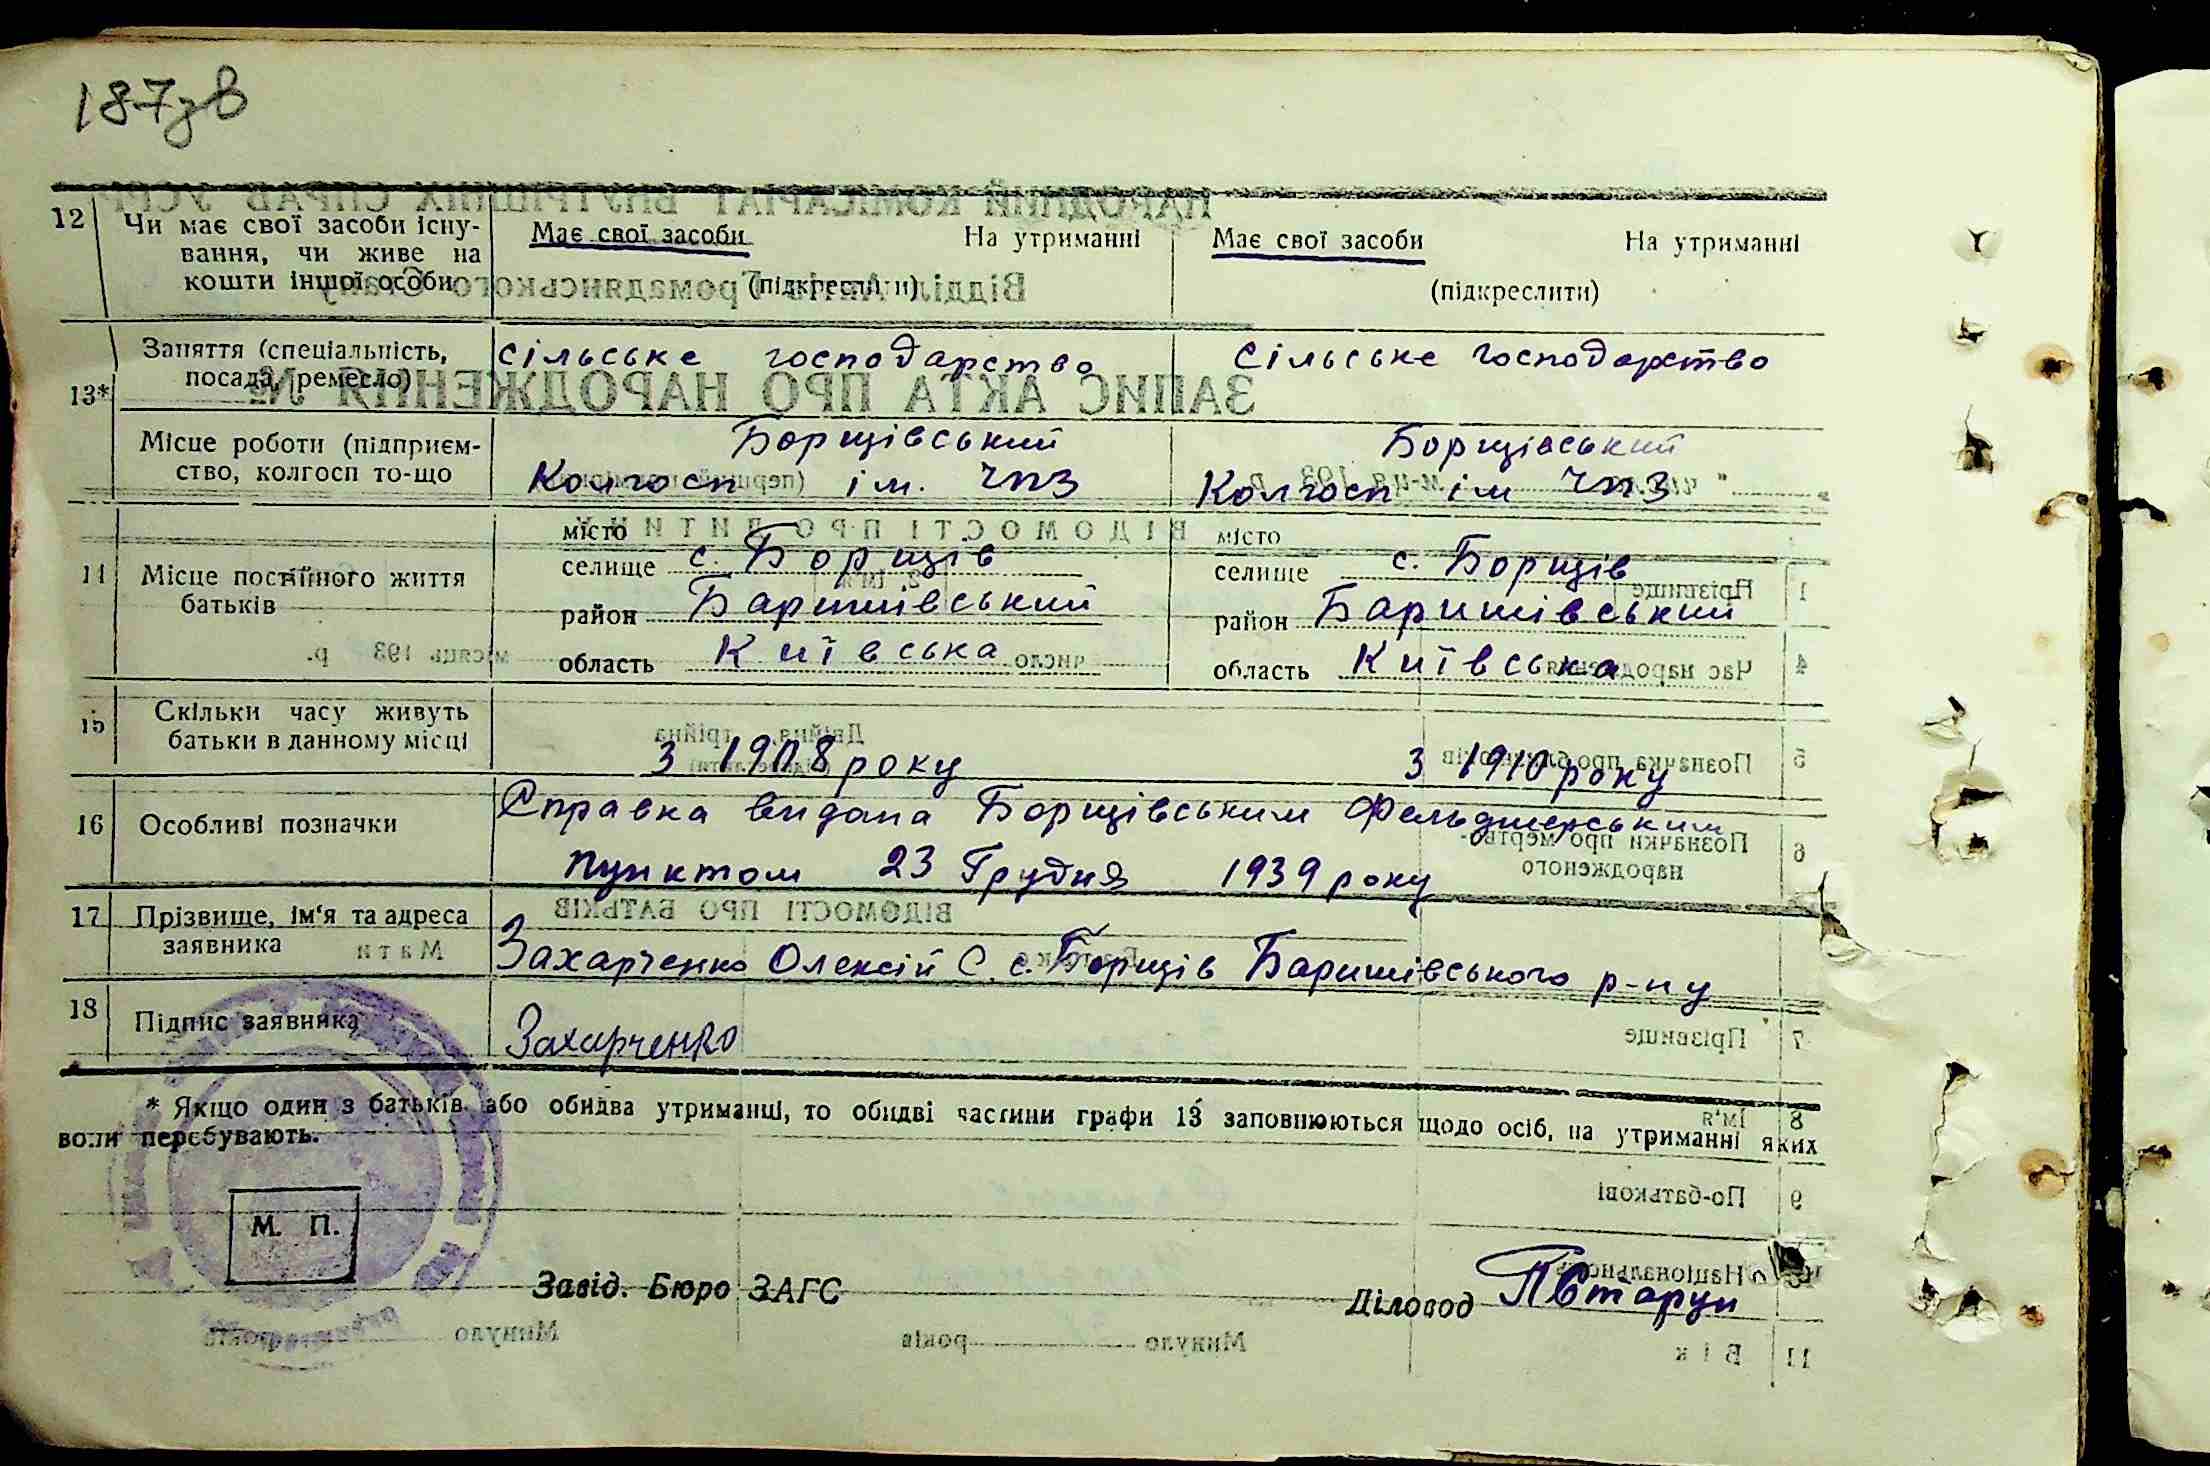 187зв
12 Чи має свої засоби існу- Має свої засоби На утриманні Має свої засоби На утриманні
вання, чи живе на
кошти іншої особи (підкреслити) (підкреслити)
Заняття (спеціальність, сільське господарство сільське господарство
посада, ремесло)
13*
Місце роботи (підприєм- Борщівський Борщівський
ство, колгосп то-що Колгосп ім. ЧПЗ Колгосп ім ЧПЗ
місто місто
14 Місце постійного життя селище с. Борщів селище с. Борщів
батьків район Баришівський район Баришівський
область Київська область Київська
15 Скільки часу живуть
батьки в данному місці з 1908 року з 1910 року
16 Особливі позначки Справка видана Борщівським Фельдшерським
пунктом 23 Грудня 1939 року
17 Прізвище, ім‘я та адреса
заявника Захарченко Олексій С. с. Борщів Баришівського р-ну
18 Підпис заявника Захарченко
* Якщо один з батьків або обидва утриманці, то обидві частини графи 13 заповнюються щодо осіб, на утриманні яких
вони перебувають.
М. П.
Завід. Бюро ЗАГС Діловод